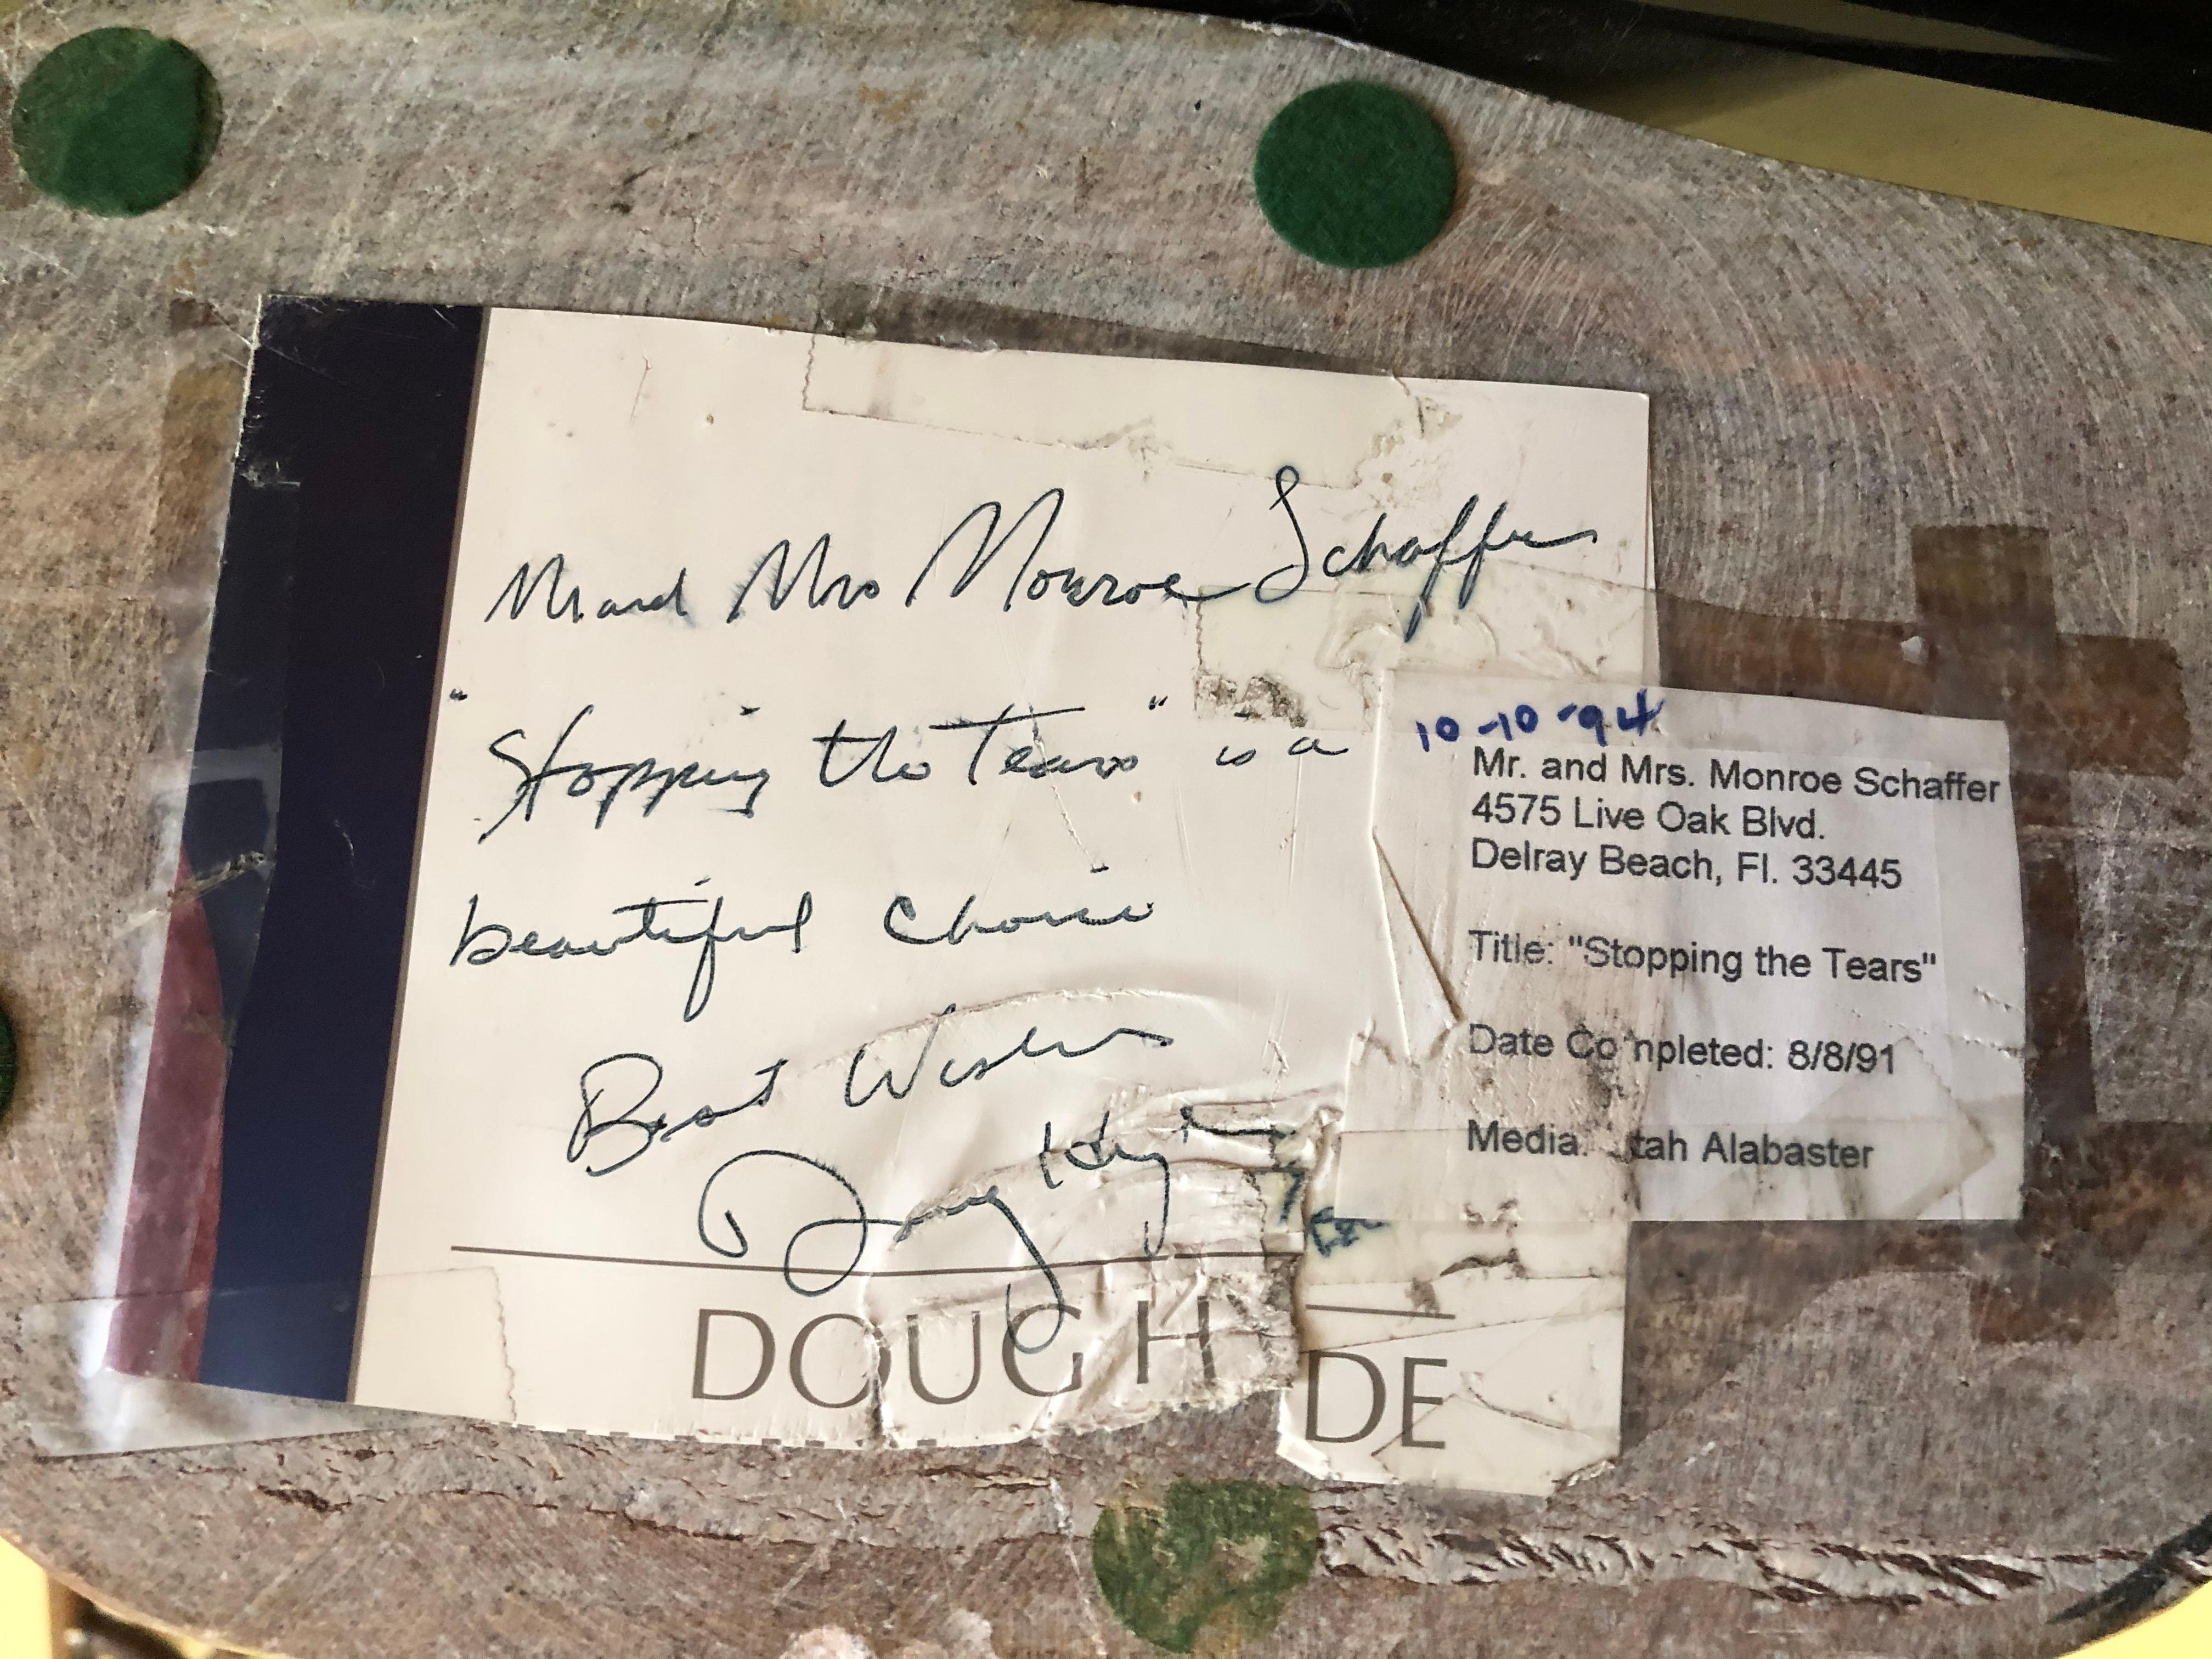 Mr and Mrs Monroe Schaffer,
"Stopping the Tears" is a
beautiful choice
Best Wishes
Doug Hyde
DOUG H DE
10-10-94
Mr. and Mrs. Monroe Schaffer
4575 Live Oak Blvd.
Delray Beach, Fl. 33445
Title: "Stopping the Tears"
Date Co npleted: 8/8/91
Media. tah Alabaster